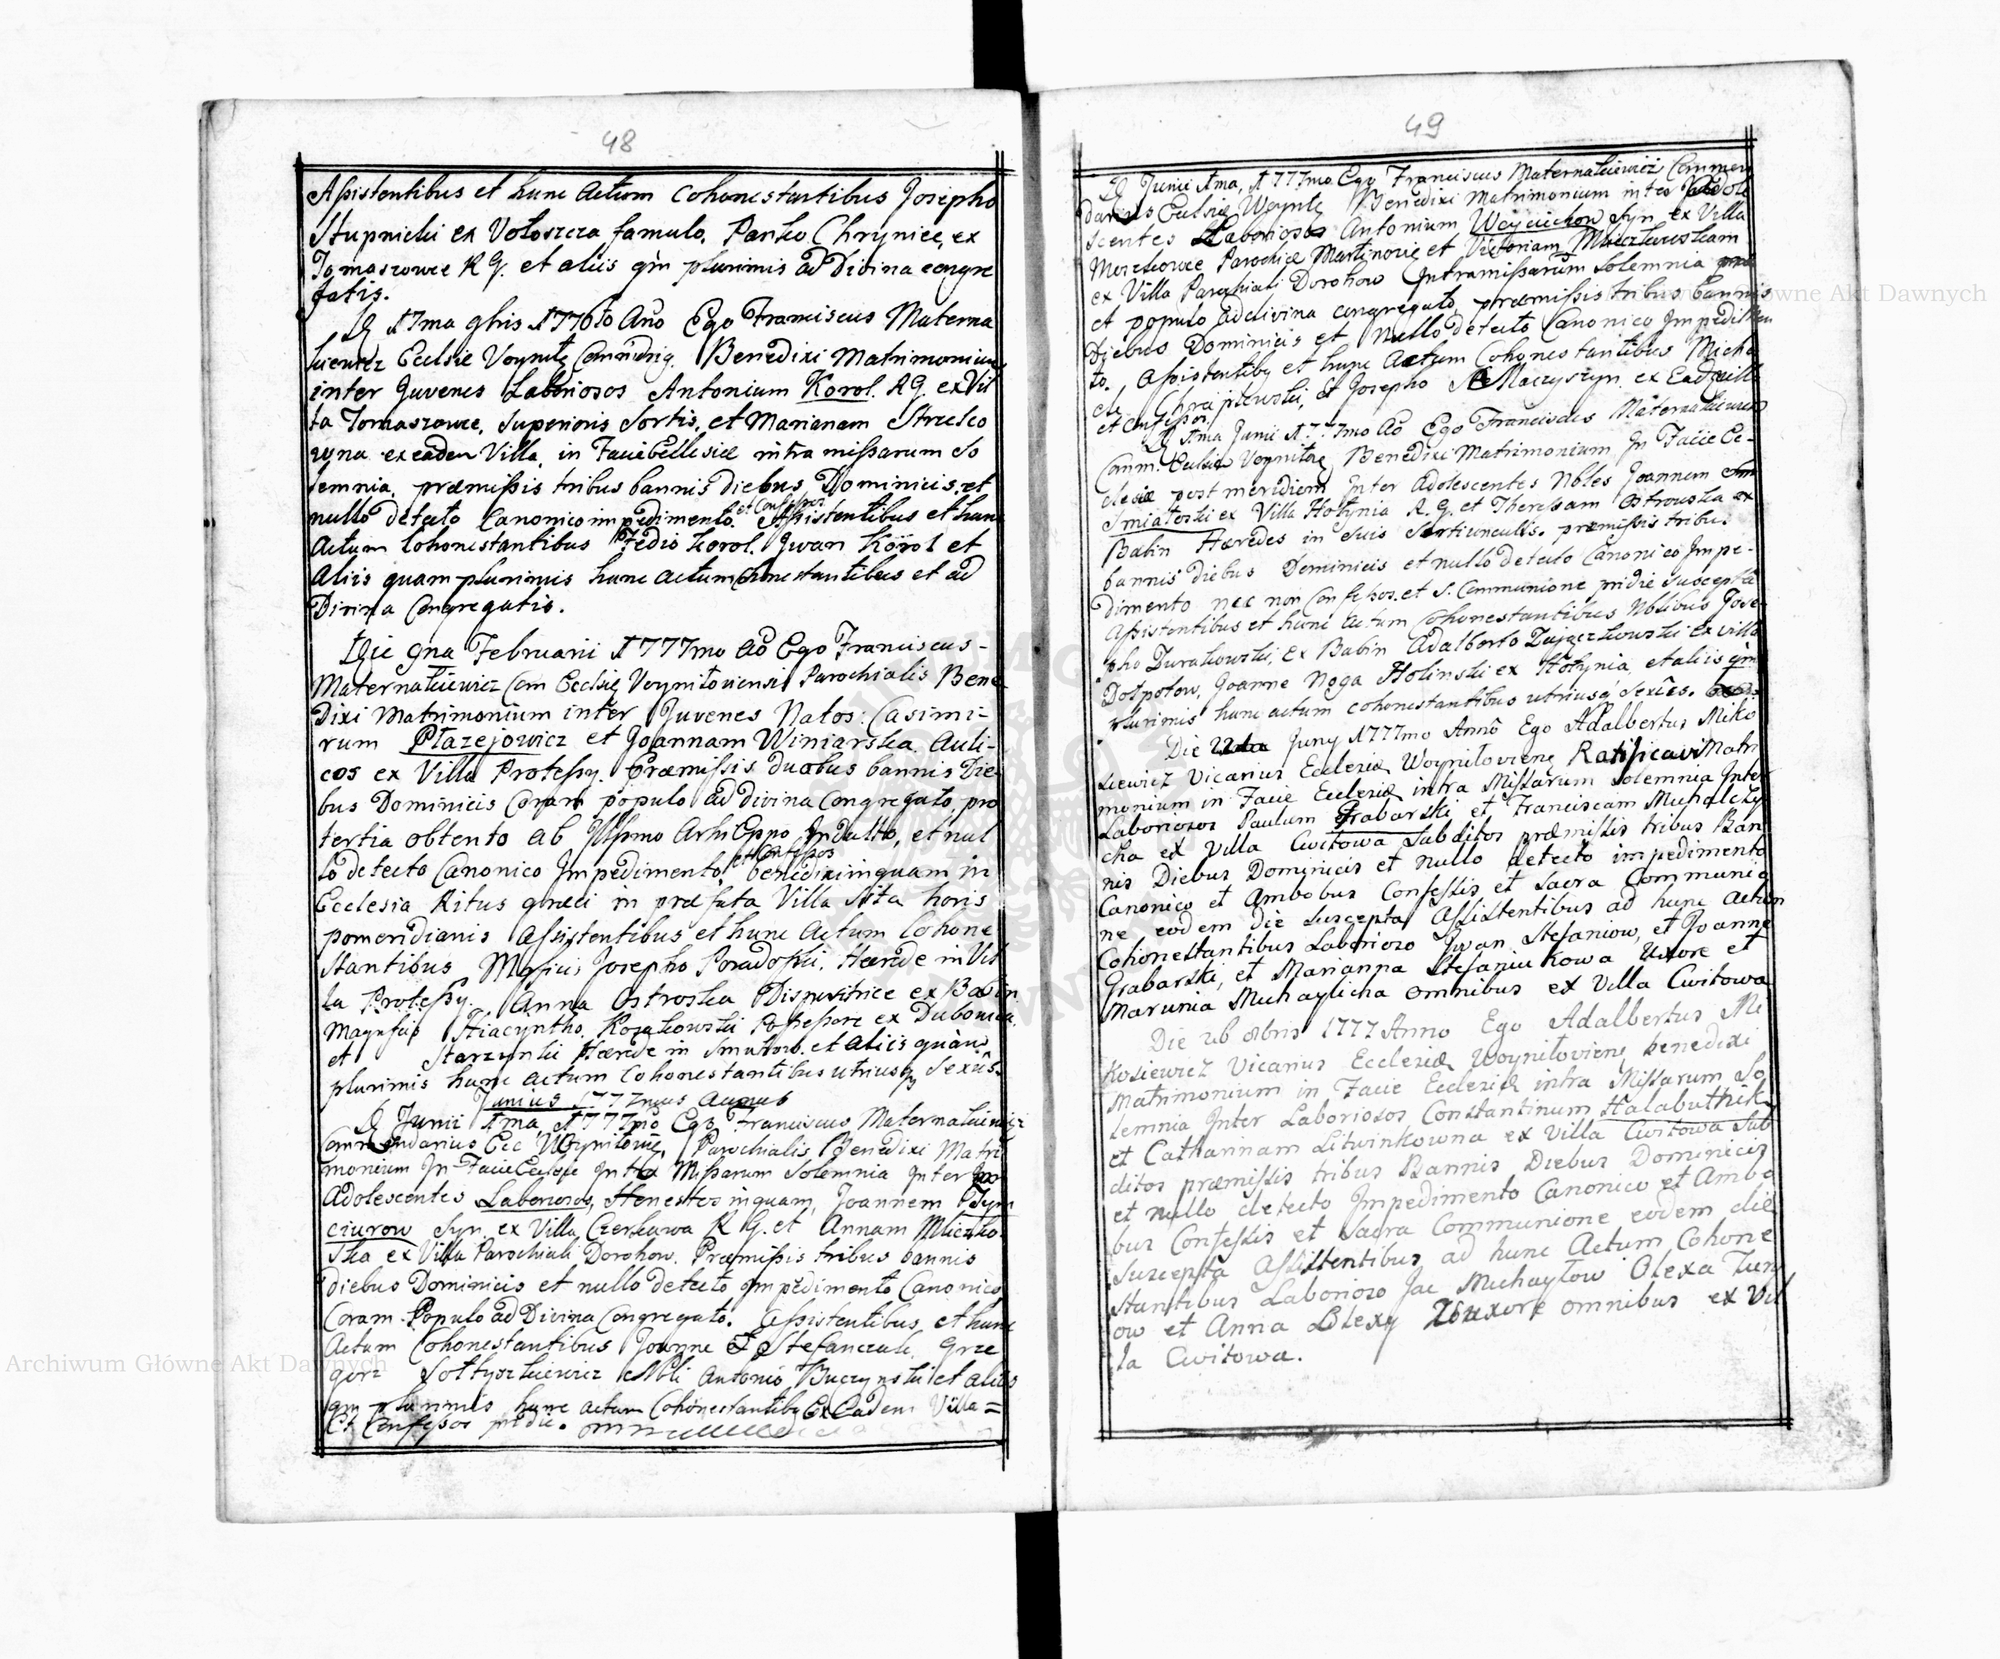 48
Assistentibus et hunc Actum Cohonestantibus Josepho
Stupnicki ex Wołoszcza famulo. Panko Chryniec, ex
Tomaszowce R G. et aliis qm plurimis ad Divina congre
gatis.
D 17ma 9bris 1776to Ano Ego Franciscus Materna
kiewicz Ecclsie Voynitę Commdrig. Benedixi Matrimonium
inter Juvenes Laboriosos Antonium Korol. R G. ex Vil
la Tomaszowce, Superioris Sortis, et Marianam Strzelco
wna ex eadem Villa, in Facie Ecclesiæ intra missarum So
lemnia, præmissis tribus bannis diebus Dominicis, et
nullo detecto Canonico impedimento. et Confessos Assistentibus et hunc
Actum Cohonestantibus Fedio Korol. Jwan Korol et
Aliis quam plurimis hunc actum Cohonestantibus et ad
Divina Congregatis.
Die 9na Februarii 1777mo Ao Ego Franciscus
Maternakiewicz Com Ecclsię Voyniłoviensis Parochialis Bene
Dixi Matrimonium inter Juvenes Natos: Casimi-
rum Płazejowicz et Joannam Winiarska. Auli-
cos ex Villa Protessy. Præmissis duobus bannis Die
bus Dominicis Coram populo ad divina Congregato, pro
tertia obtento ab Illssmo Archi Eppo Indulto, et nul
lo detecto Canonico Impedimento, et Confessos benedixi inquam in
Ecclesia Ritus græci in præfata Villa Sita horis
pomeridianis Assistentibus et hunc Actum Cohone
stantibus Mgficis Josepho Poradoski. Hærede in Vil
la Protessy. Anna Ostroska Dispositrice ex Babin
Magnfiis Hiacyntho Kozakowski Possessore ex Dubowica
et Starzynski Hærede in Smukow. et aliis quàm
plurimis hunc actum Cohonestantibus utriusq Sexûs.
Junius 1777mus Annus
D Junii 1ma 1777mo Ego Franciscus Maternakiewicz
Commendarius Ecc Woynitowię, Parochialis Benedixi Matri
monium In Facie Ecclsie Intra Missarum Solemnia Inter
Adolescentes Laboriosos, Honestos inquam, Joannem Tym
ciurow Syn ex Villa Czerkawa R G. et Annam Mliczko
ska ex Villa Parochiali Dorohow. Præmissis tribus bannis
diebus Dominicis et nullo detecto Impedimento Canonico
Coram Populo ad Divina Congregato. Assistentibus, et hunc
Actum Cohonestantibus Joanne Stefanczuk. Grze
gorz Sołtyszkiewicz Nbli Antonio Buczynski et aliis
qm plurimis hunc actum Cohonestantibq Ex Eadem Villa =
Et Confessos pridie.
49
D Junii 1ma, 1777mo Ego Franciscus Maternakiewicz Commen
darius Eccsię Woynitę Benedixi Matrimonium inter Adole
scentes Laboriosos Antonium Woyciichow Syn ex Villa
Moszkowce Parochiæ Martinoviæ et Victoriam
ex Villa Parochiali Dorohow Intra missarum Solemnia
et populo ad divina congregato, præmissis tribus bannis
Diebus Dominicis et Nullo detecto Canonico Impedimen
to, Assistentibq et hunc Actum Cohonestantibus Micha
ele Chrzeiptewski, et Josepho Maczyszyn ex Eadem villa
et Confessos
D 1ma Junii 1777mo Ao Ego Franciscus Maternakiewicz
Comm. Ecclsię Voynitovię Benedixi Matrimonium In Facie Ec-
clesiæ post meridiem Inter Adolescentes Nbles Joannem
Smiatoski ex Villa Hołynia R. G. et Theresam Ostrouska ex
Babin Hæredes in suis Sortiunculis. præmissis tribus
bannis diebus Dominicis et nullo detecto Canonico Impe-
dimento nec non Confessos. et S. Communione pridie suscepta
Assistentibus et hunc Actum Cohonestantibus Nblibus Jose-
pho Durakowski, Ex Babin Adalberto Zajączkowski ex villa
Dołpotow, Joanne Noga Hołinski ex Hołynia, et aliis qm
plurimis hunc actum cohonestantibus utriusq Sexûs.
Die 22da Juny 1777mo Annô Ego Adalbertus Miko
siewicz Vicarius Ecclesiæ Woynitoviens Ratificavi Matri
monium in Facie Ecclesiæ intra Missarum Solemnia Inter
Laboriosos Paulum Grabarski et Franciscam Muhalczy
cha ex Villa Cwitowa Subditos præmissis tribus Ban
nis Diebus Dominicis et Nullo detecto impedimento
Canonico et Ambobus Confessis et Sacra Communio
ne eodem die suscepta Assistentibus ad hunc Actum
Cohonestantibus Laborioso Jwan Stefaniow, et Joanne
Grabarski, et Marianna Stefaniukowa Uxore et
Marunia Muhaylicha omnibus ex Villa Cwitowa
Die 26 8bris 1777 Anno Ego Adalbertus Mi
Kosiewicz Vicarius Ecclesiæ Woynitoviens benedixi
Matrimonium in Facie Ecclesiæ intra Missarum So
lemnia Inter Laboriosos Constantinum Halabuthik
et Catharinam Litwinkowna ex Villa Cwitowa Sub
ditos præmissis tribus Bannis Diebus Dominicis
et nullo detecto Impedimento Canonico et Ambo
bus Confessis et Sacra Communione eodem die
Suscepta Assistentibus ad hunc Actum Cohone
stantibus Laborioso Jac Muhayłow Olexa
ow et Anna Olexy uxore omnibus ex Vil
la Cwitowa.
Archiwum Główne Akt Dawnych